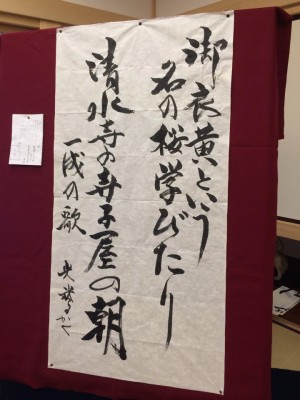 御衣黄という
名の桜学びたり
清水寺の寺子屋の朝
一成の歌